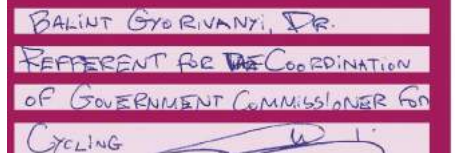 BALINT GYORIVANYI, DR.
REFFERENT FOR THE COORDINATION
OF GOVERNMENT COMMISSIONER FOR
CYCLING